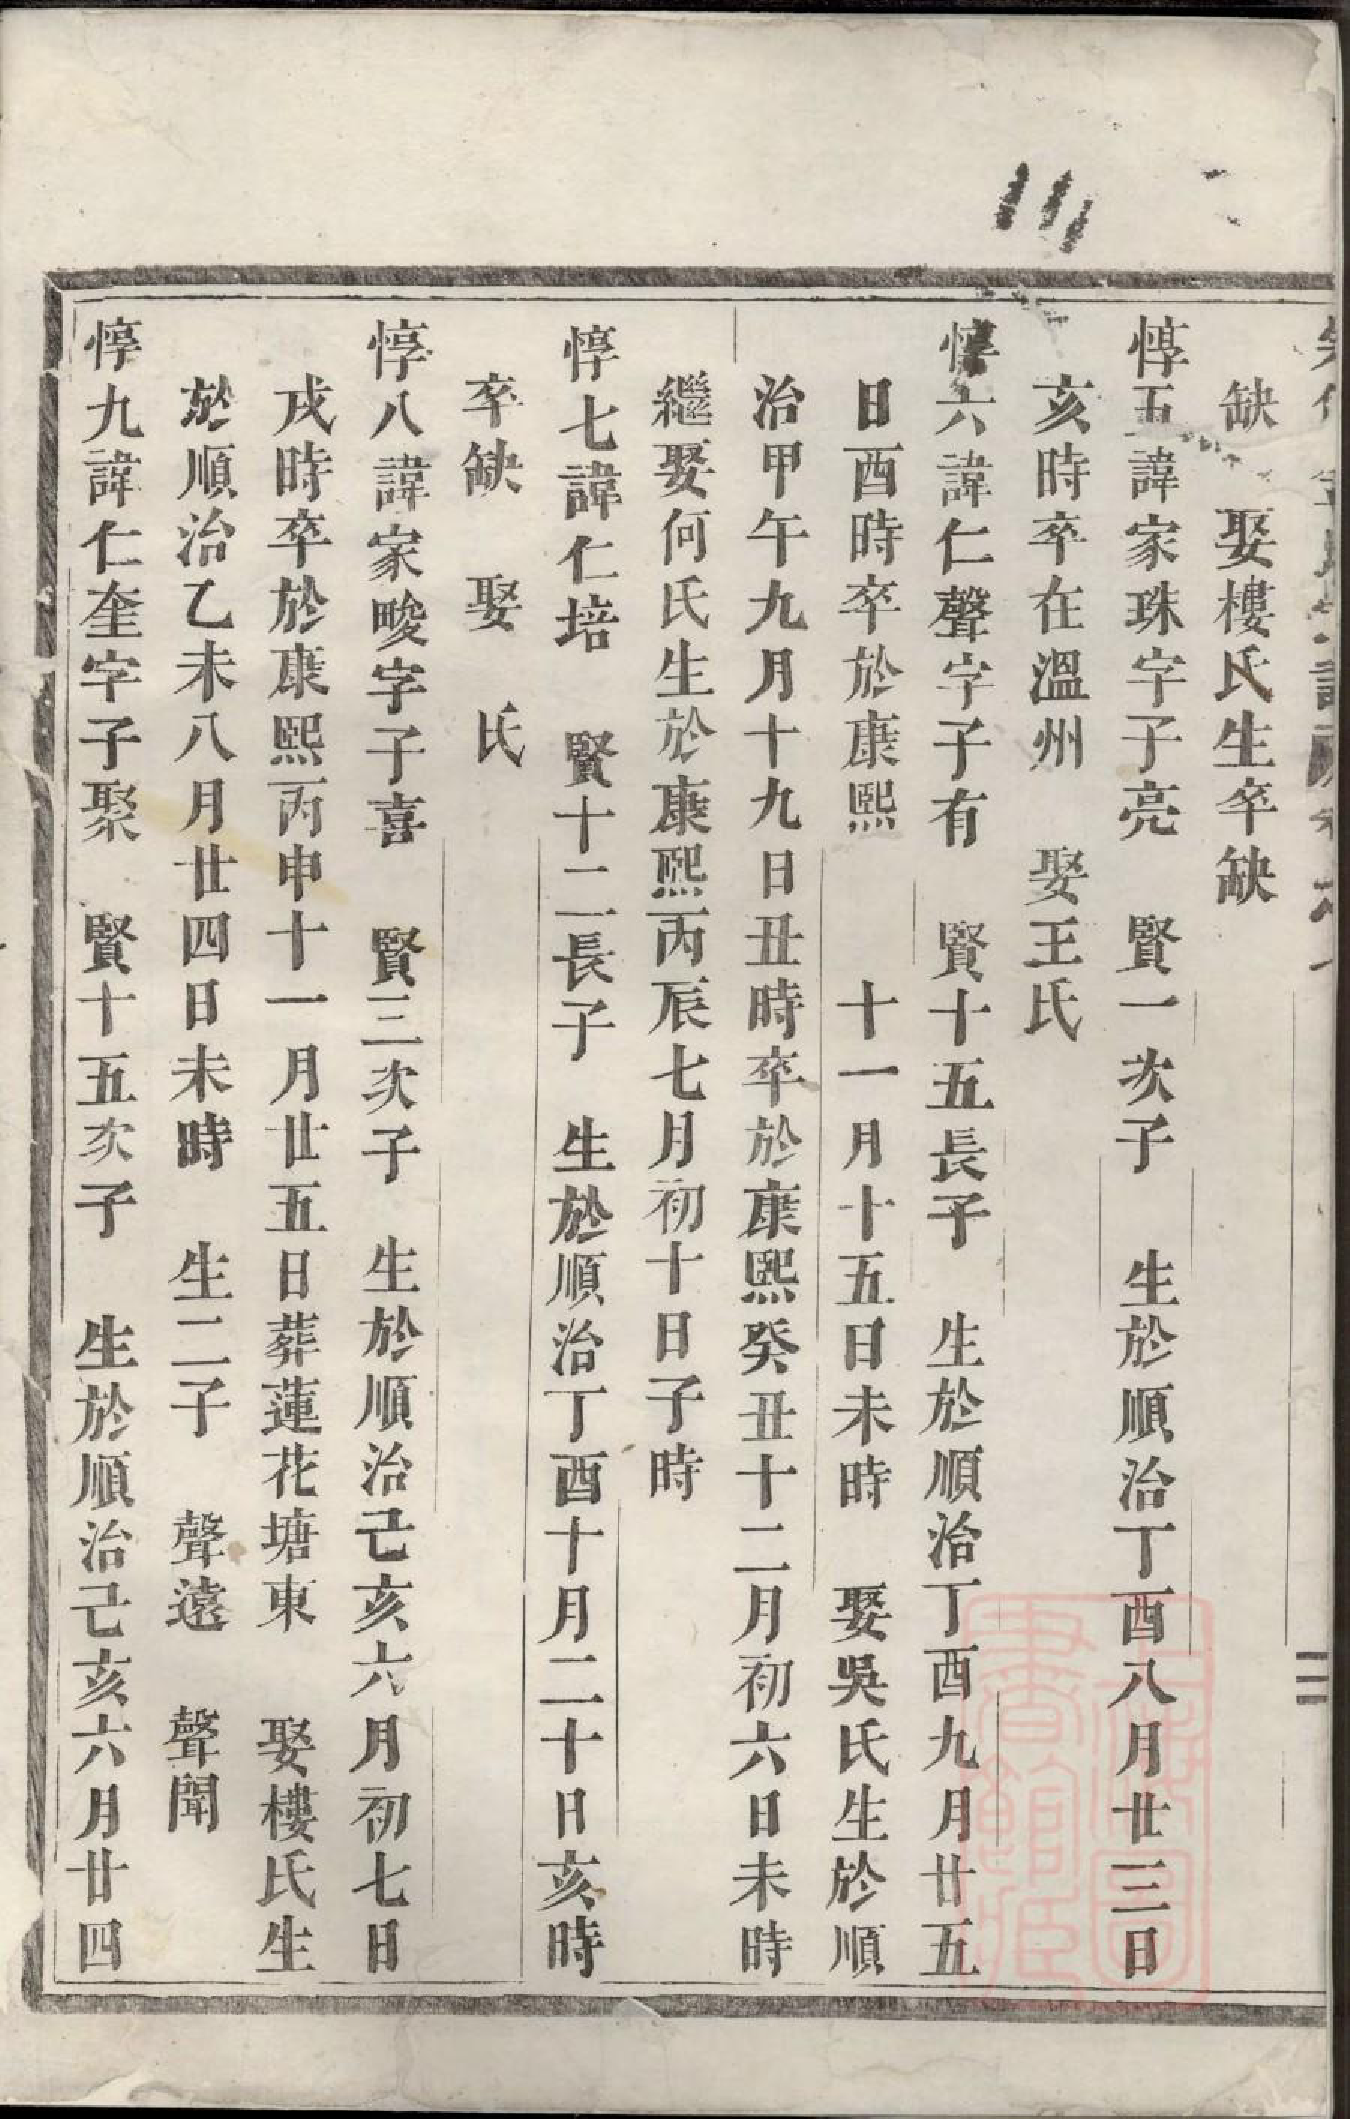 缺　娶樓氏生卒缺
惇五諱家珠字子亮　賢一次子　生於順治丁酉八月廿三日
亥時卒在溫州　娶王氏
惇六諱仁聲字子有　賢十五長子　生於順治丁酉九月廿五
日酉時卒於康熙　　十一月十五日未時　娶吳氏生於順
治甲午九月十九日丑時卒於康熙癸丑十二月初六日未時
繼娶何氏生於康熙丙辰七月初十日子時
惇七諱仁培　賢十二長子　生於順治丁酉十月二十日亥時
卒缺　娶　氏
惇八諱家畯字子喜　賢三次子　生於順治己亥六月初七日
戌時卒於康熙丙申十一月廿五日葬蓮花塘東　娶樓氏生
於順治乙未八月廿四日未時　生二子　聲遠　聲聞
惇九諱仁奎字子聚　賢十五次子　生於順治己亥六月廿四